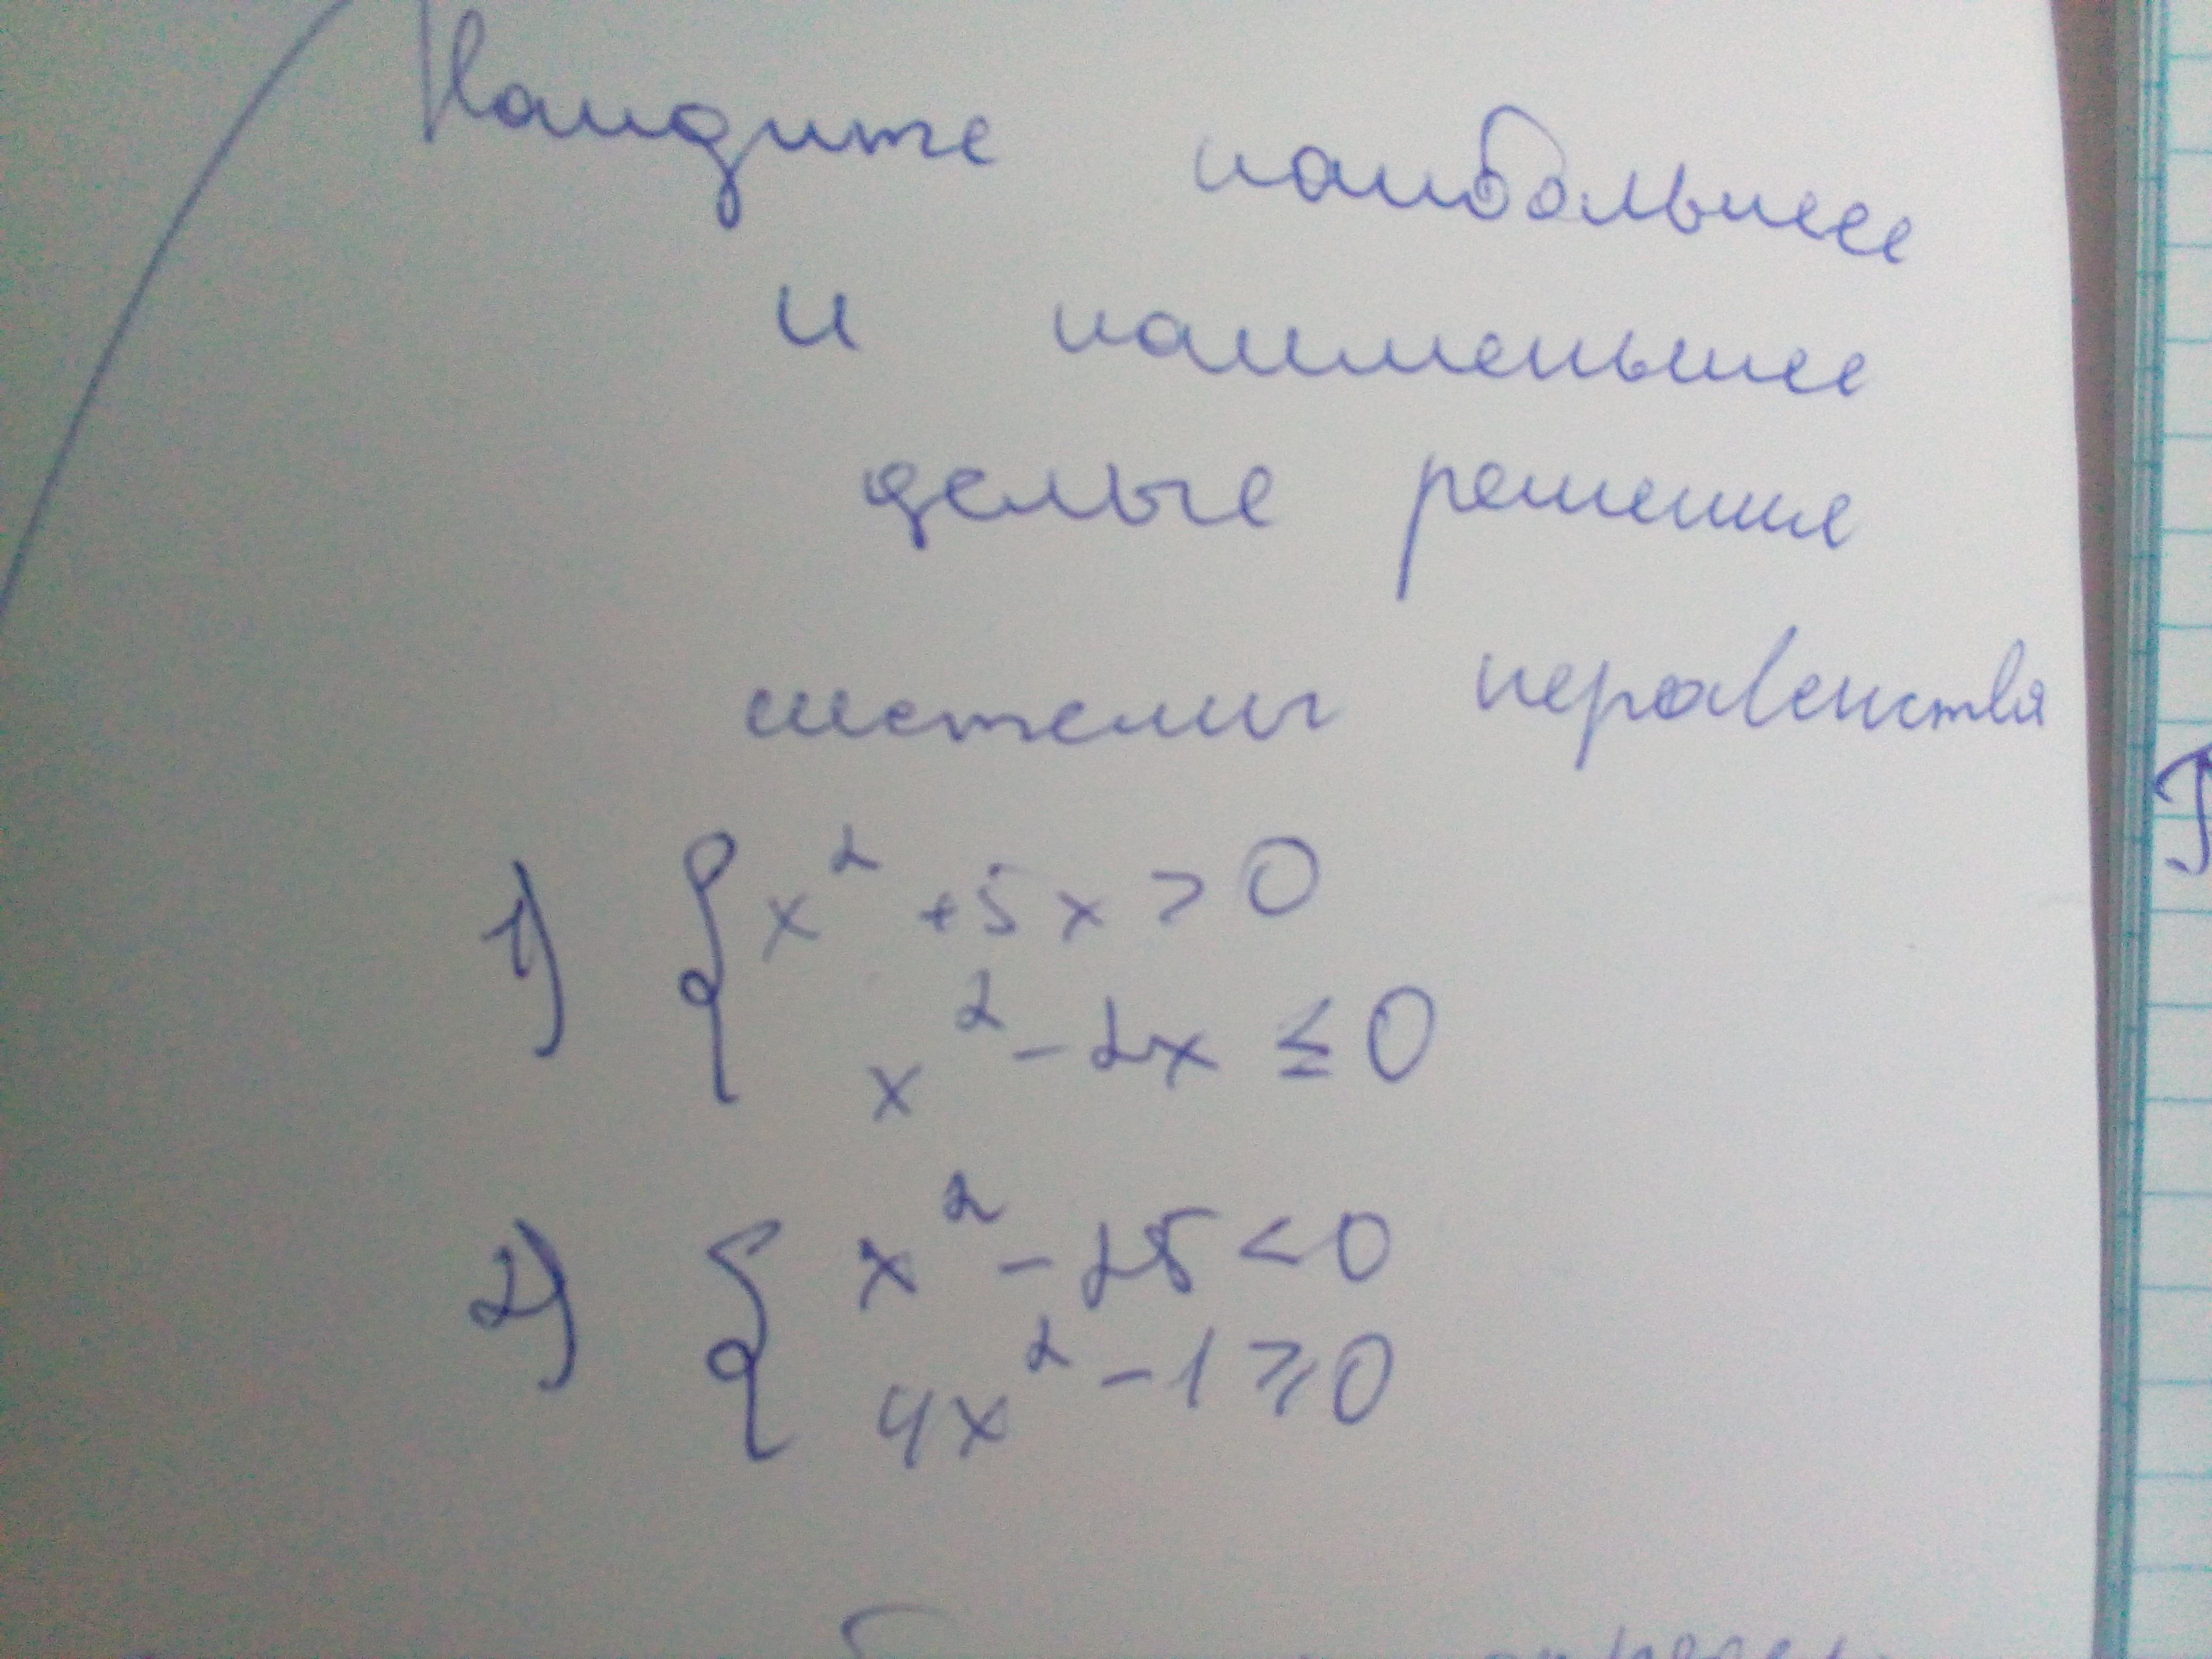 Найдите наибольшее
и наименьшее
целые решения
системы неравенства
1) { x² + 5x > 0
x² - 2x ≤ 0
2) { x² - 25 < 0
4x² - 1 ≥ 0